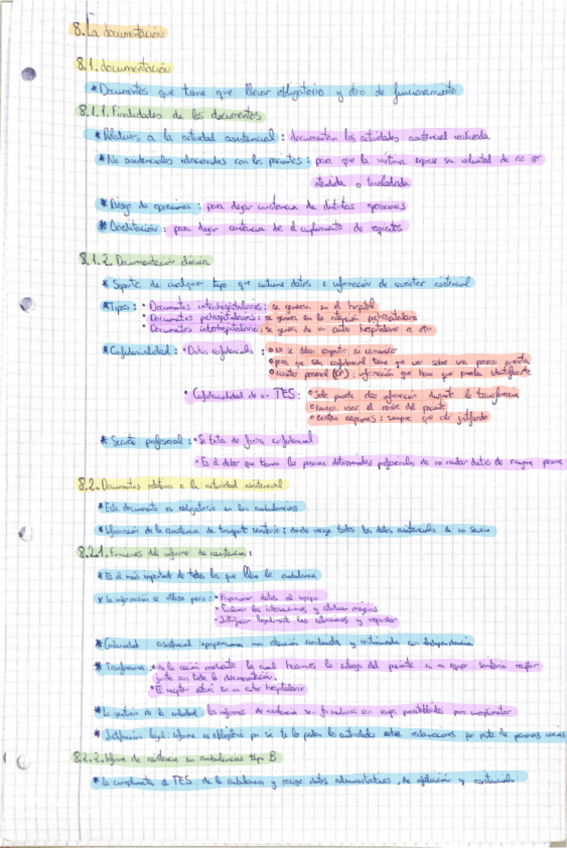 8. La documentación
8.1. documentación
* Documentos que tiene que llevar obligatorio y otro de funcionamiento
8.1.1. Finalidades de los documentos
* Relativos a la actividad asistencial: documentan las actividades asistencial realizada
* No asistenciales relacionadas con los pacientes: para que la víctima exprese su voluntad de no ser
atendida o trasladada
* operaciones: para dejar constancia de distintas operaciones
* Acreditación: para dejar constancia de el cumplimiento de requisitos
8.1.2. Documentación clínica
* Soporte de cualquier tipo que contiene datos e información de carácter asistencial
* Tipos: • Documentos intrahospitalarios: se generan en el hospital
• Documentos prehospitalarios: se genera en la atención prehospitalaria
• Documentos interhospitalario: se genera de un centro hospitalario a otro
* Confidencialidad: • Datos confidenciales: No se deben
que sea confidencial tiene que ver sobre una persona
carácter personal información que hace que pueda identificarte
• Confidencialidad de un TES: Solo puede dar información durante la transferencia
nunca usar el nombre del paciente
siempre que esté justificado
* Secreto profesional: • Se trata de forma confidencial
• Es el deber que tienen las personas determinadas profesionales de no revelar datos de
8.2. Documentos relativos a la actividad asistencial
* Este documento es obligatorio en las ambulancias
* Información de la asistencia de transporte sanitario: donde recoge todos los datos asistenciales de un servicio
8.2.1. Funciones del informe de asistencia:
* Es el más importante de todos los que lleva la ambulancia
* La información se utiliza para: • Proporcionar datos al equipo
• Evaluar las intervenciones y establecer mejoras
• Justificar legalmente las actuaciones y
* Continuidad asistencial: una atención continuada y con independencia
* Transferencia: • es la acción mediante la cual hacemos la entrega del paciente a un equipo sanitario receptor
junto con toda la documentación.
• El receptor estará en un centro hospitalario
* La gestión de la calidad: los informes de asistencia son formularios con campos para cumplimentar
* Justificación legal: informe es obligatorio por si te lo piden las autoridades ante reclamaciones por parte de personas
8.2.2. Informe de asistencia en ambulancias tipo B
* Lo cumplimenta el TES de la ambulancia y recoge datos administrativos, de filiación y asistenciales